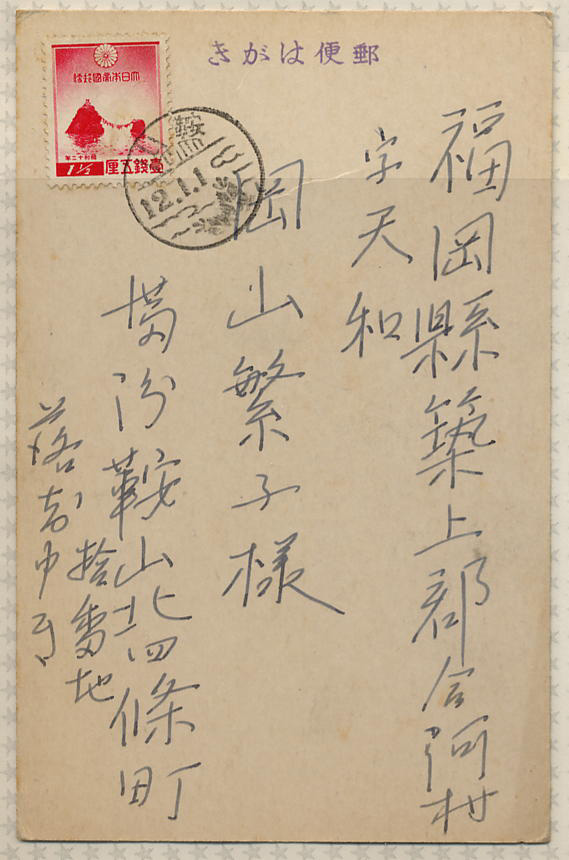 郵便はがき
大日本帝國郵便
昭和十二年
壹錢五厘
1½
鞍山
12.1.1
福岡縣築上郡合河村
字天和
岡山繁子様
満洲鞍山北四條町
拾番地
落